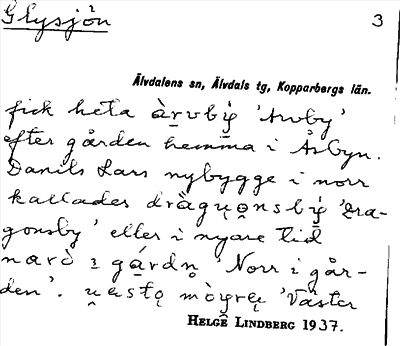 Glysjön
3
Älvdalens sn, Älvdals tg, Kopparbergs län.
fick heta àrvbý 'Arvby'
efter gården hemma i Åsbyn.
Danils Lars nybygge i norr
kallades dràguonsbý 'Dra-
gonsby' eller i nyare tid
nårò ı gárdn 'Norr i går-
den'. uestǫ mòyręı 'Väster
HELGE LINDBERG 1937.